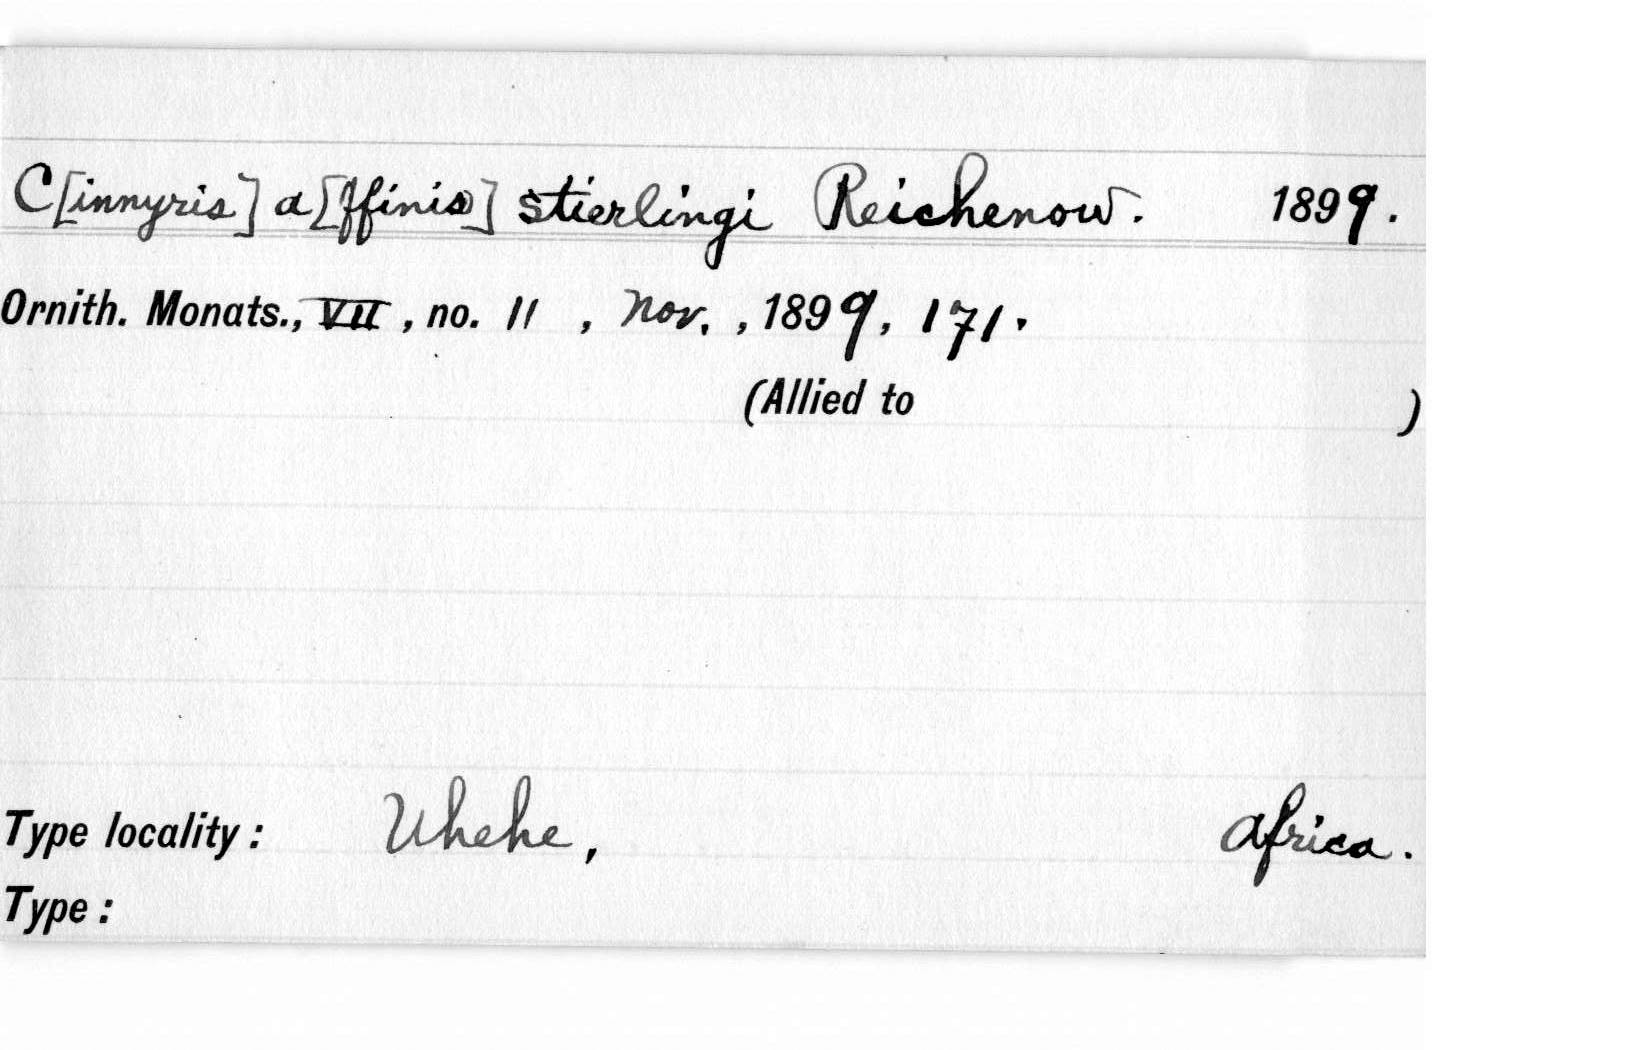 C[innyris] a[ffinis] stierlingi Reichenow. 1899.
Ornith. Monats., VII, no. 11, Nov., 1899, 171.
(Allied to )
Type locality: Uhehe, Africa.
Type: